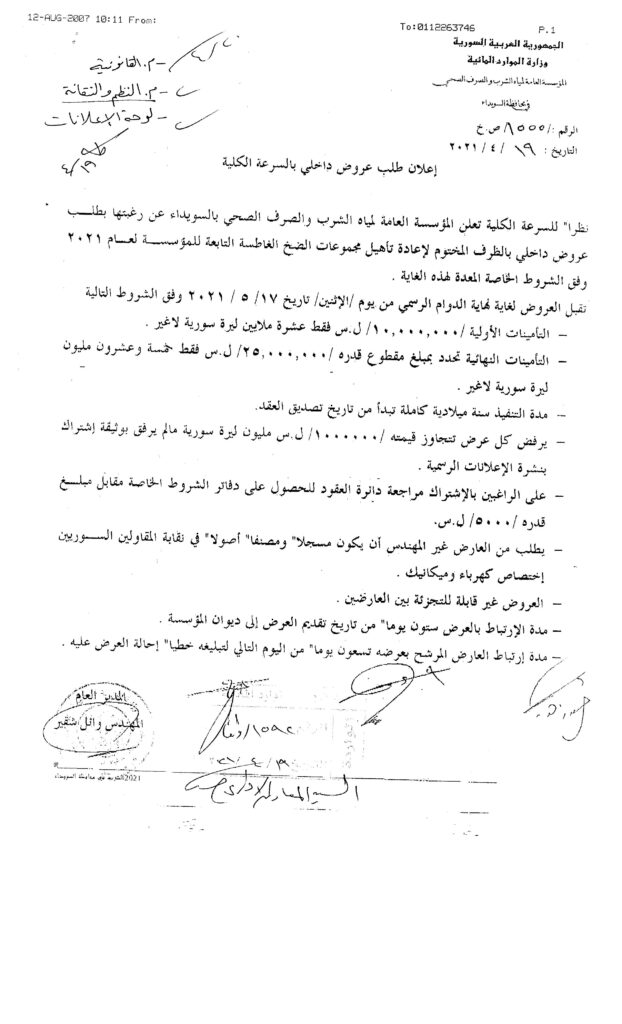 12-AUG-2007 10:11 From:
To:0112263746
P.1
الجمهورية العربية السورية
وزارة الموارد المائية
المؤسسة العامة لمياه الشرب والصرف الصحي
في محافظة السويداء
الرقم : /٨٥٥٥ ص.خ
التاريخ : ١٩ / ٤ / ٢٠٢١
– م. القانونية
– م. النظم والتقانة
– لوحة الإعلانات
٤/١٩
إعلان طلب عروض داخلي بالسرعة الكلية
نظرا" للسرعة الكلية تعلن المؤسسة العامة لمياه الشرب والصرف الصحي بالسويداء عن رغبتها بطلب
عروض داخلي بالظرف المختوم لإعادة تأهيل مجموعات الضخ الغاطسة التابعة للمؤسسة لعام ٢٠٢١
وفق الشروط الخاصة المعدة لهذه الغاية .
تقبل العروض لغاية نهاية الدوام الرسمي من يوم /الإثنين/ تاريخ ١٧/ ٥ / ٢٠٢١ وفق الشروط التالية
– التأمينات الأولية /١٠,٠٠٠,٠٠٠/ ل.س فقط عشرة ملايين ليرة سورية لاغير .
– التأمينات النهائية تحدد بمبلغ مقطوع قدره /٢٥,٠٠٠,٠٠٠/ ل.س فقط خمسة وعشرون مليون
ليرة سورية لاغير .
– مدة التنفيذ سنة ميلادية كاملة تبدأ من تاريخ تصديق العقد.
– يرفض كل عرض تتجاوز قيمته /١٠٠٠٠٠٠/ ل.س مليون ليرة سورية مالم يرفق بوثيقة إشتراك
بنشرة الإعلانات الرسمية .
– على الراغبين بالإشتراك مراجعة دائرة العقود للحصول على دفاتر الشروط الخاصة مقابل مبلغ
قدره /٥٠٠٠/ ل.س.
– يطلب من العارض غير المهندس أن يكون مسجلا" ومصنفا" أصولا" في نقابة المقاولين السوريين
إختصاص كهرباء وميكانيك .
– العروض غير قابلة للتجزئة بين العارضين .
– مدة الإرتباط بالعرض ستون يوما" من تاريخ تقديم العرض إلى ديوان المؤسسة .
– مدة إرتباط العارض المرشح بعرضه تسعون يوما" من اليوم التالي لتبليغه خطيا" إحالة العرض عليه .
المدير العام
المهندس وائل شقير